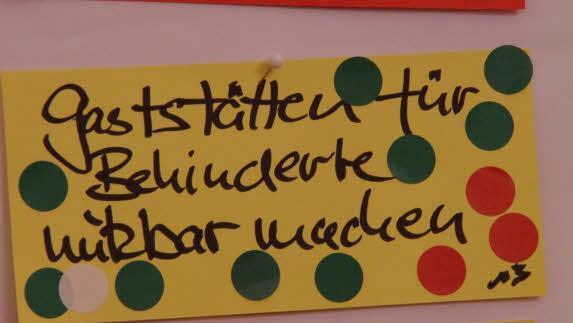 Gaststätten für
Behinderte
nutzbar machen